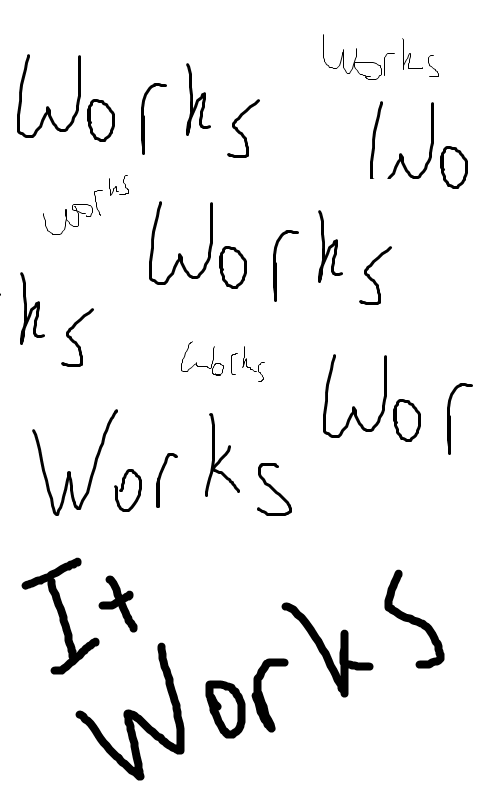 Works
Works
Wo
works
Works
ks
Works
Wor
Works
It
Works